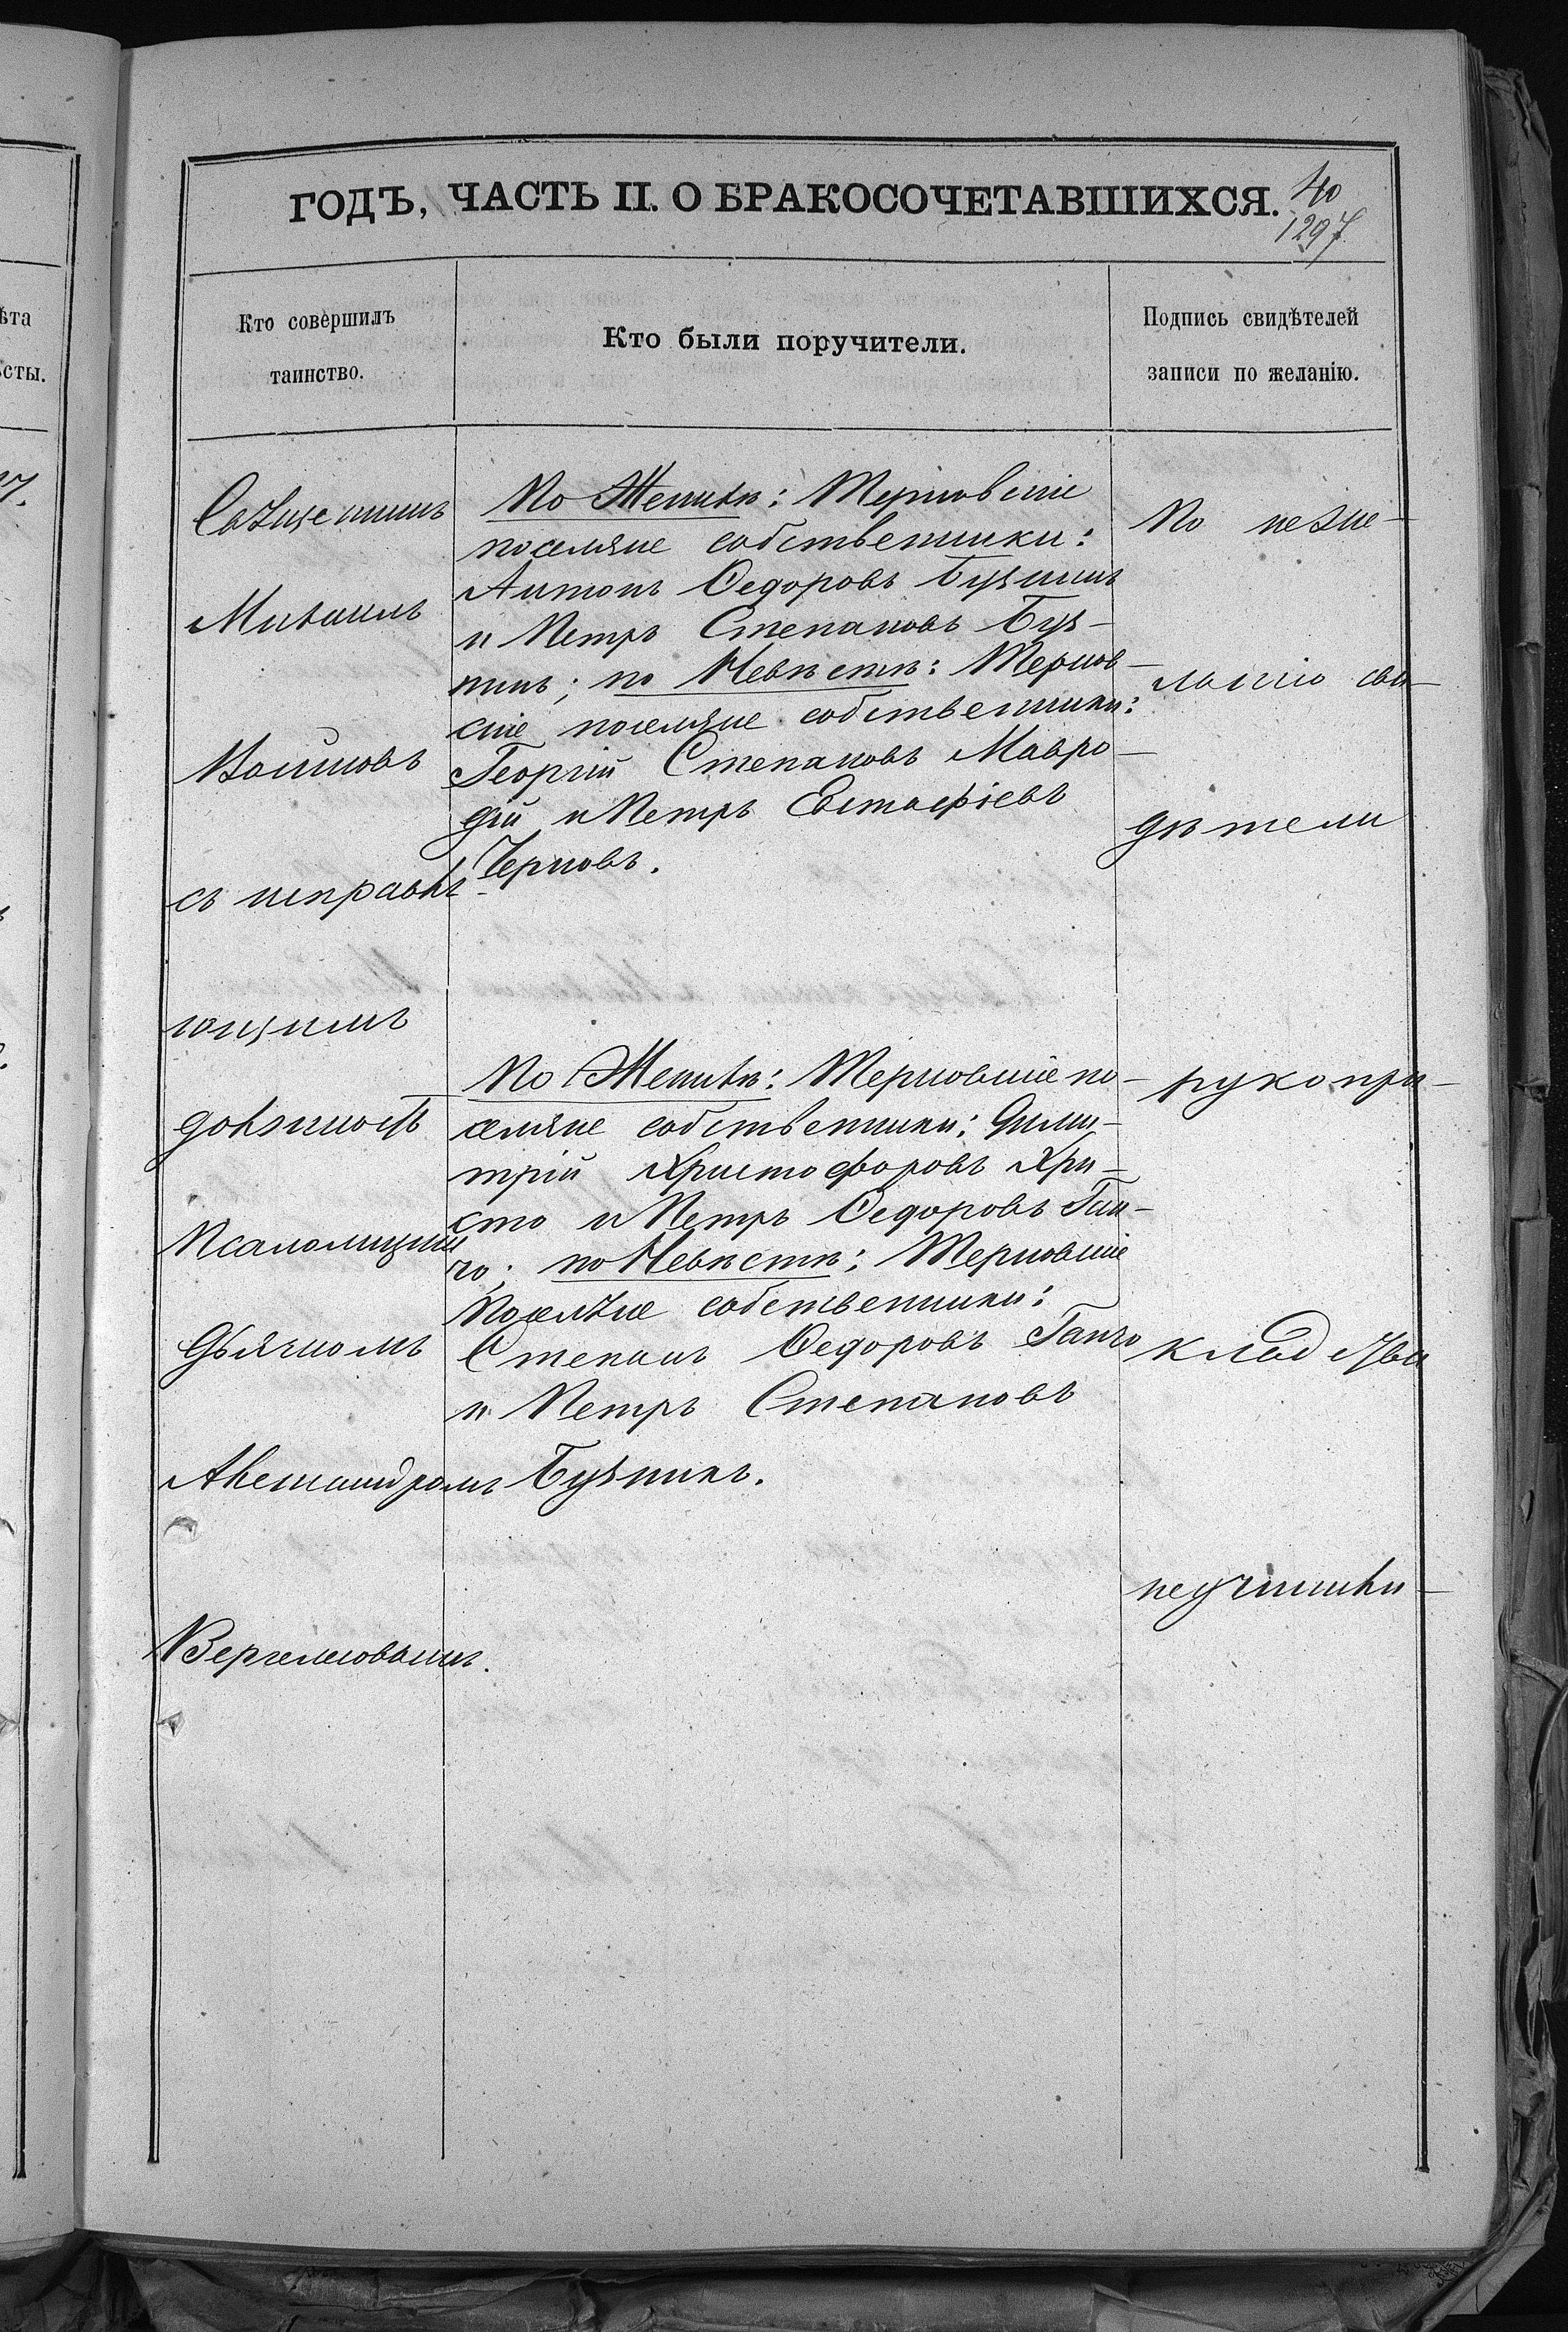 ѣта
сты.
ГОДЪ, ЧАСТЬ II. О БРАКОСОЧЕТАВШИХСЯ.
40
1297
Кто совершилъ
таинство.
Кто были поручители.
Подпись свидѣтелей
записи по желанію.
Священникъ
Михаилъ
Войновъ
съ исправл
ющимъ
должность
Псаломщика
Дьячкомъ
Александромъ
По Женихѣ: Терновскіе
поселяне собственники:
Антонъ Ѳедоровъ
и Петръ Степановъ
по Невѣстѣ: Тернов-
скіе поселяне собственники:
Георгій Степановъ Мавро-
дій и Петръ Евстафіевъ
Черновъ.
По Женихѣ: Терновскіе по-
селяне собственники: Дими-
трій Христофоровъ Хри-
сто и Петръ Ѳедоровъ Ган-
чо; по Невѣстѣ: Терновскіе
поселяне собственники:
Степанъ Ѳедоровъ Ганчо
и Петръ Степановъ
По неже-
ланію сви-
дѣтели
рукопри-
кладства
не учинили